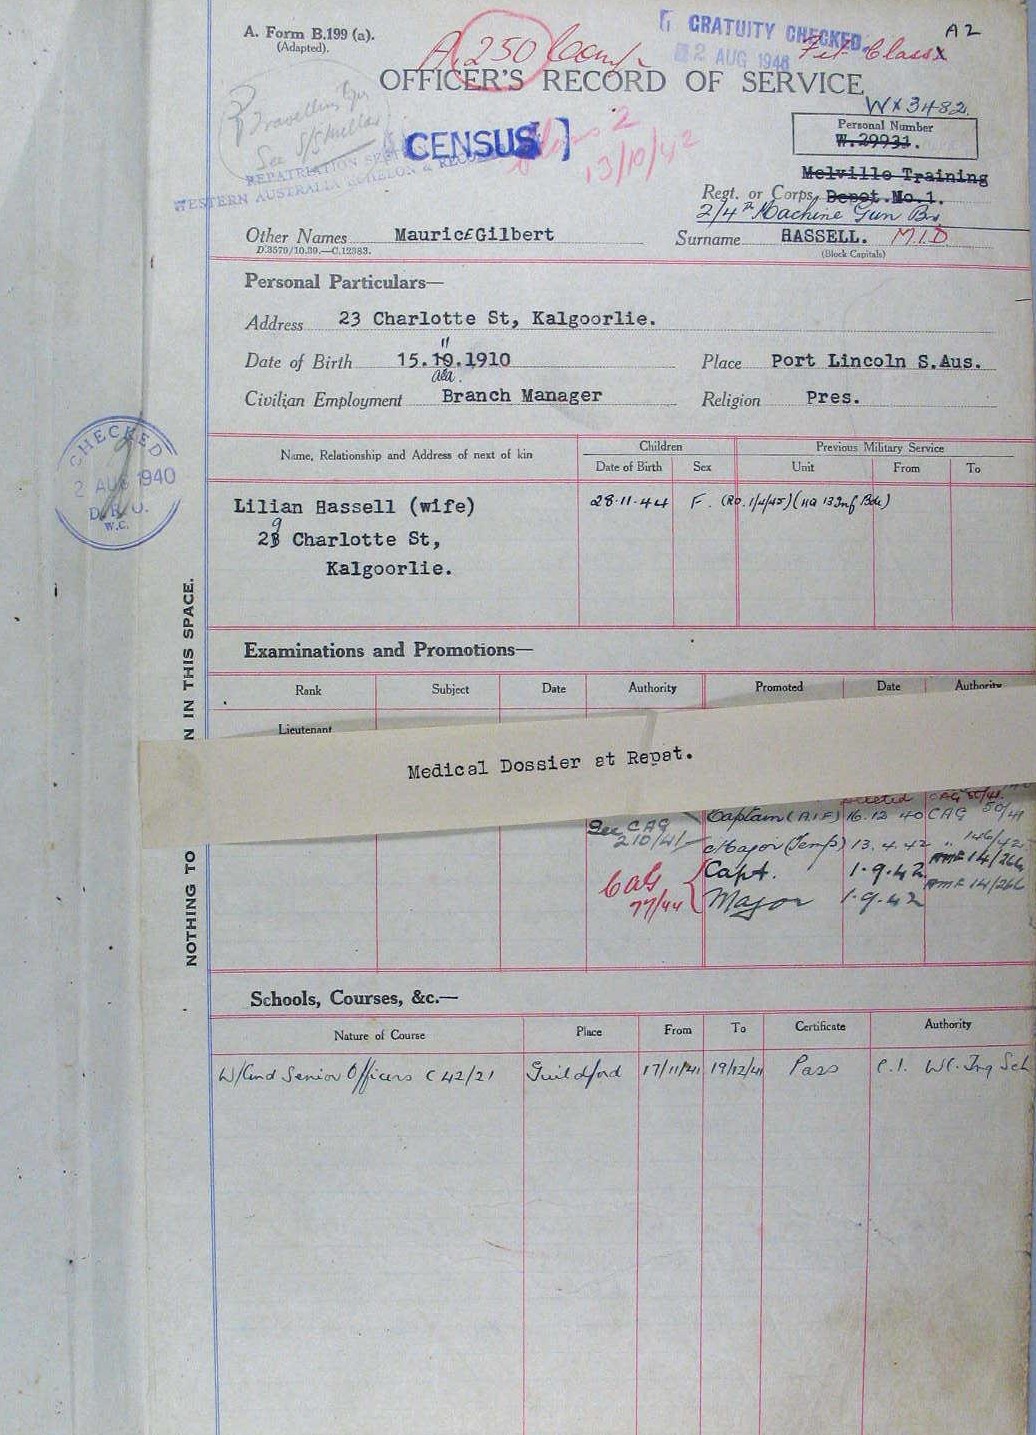 A. Form B.199 (a).
(Adapted).
A 250
GRATUITY CHECKED.
2 AUG 1946
Fit Class X
A2
OFFICER'S RECORD OF SERVICE
WX3482.
Personal Number
W.29931.
Travelling
See
REPATRIATION
WESTERN AUSTRALIA ECHELON & RECORDS
CENSUS ]
Class 2
13/10/42
Melville Training
Regt. or Corps Depot.No.1.
2/4th Machine Gun Bn
Other Names MauricEGilbert
D.3579/10.39.—C.12383.
Surname HASSELL. M.I.D
(Block Capitals)
Personal Particulars—
Address 23 Charlotte St, Kalgoorlie.
11
Date of Birth 15.10.1910
Place Port Lincoln S.Aus.
Civilian Employment Branch Manager
Religion Pres.
Name, Relationship and Address of next of kin
Children
Previous Military Service
Date of Birth Sex Unit From To
Lilian Hassell (wife)
28.11.44 F. (Ro. 1/4/45) (HQ 13 Inf Bde)
9
23 Charlotte St,
Kalgoorlie.
CHECKED
2 AUG 1940
D.R.O.
W.C.
NOTHING TO
N IN THIS SPACE.
Examinations and Promotions—
Rank Subject Date Authority Promoted Date Authority
Lieutenant
Medical Dossier at Repat.
CAG 50/41.
Captain (AIF) 16.12.40 CAG 50/41
See CAG
210/41
Major (Temp) 13.4.42 " 146/42
Capt. 1.9.42 AMF 14/266
CAG
77/44
Major 1.9.42 AMF 14/266
Schools, Courses, &c.—
Nature of Course Place From To Certificate Authority
W/Cmd Senior Officers C 42/21 Guildford 17/11/41 19/12/41 Pass C.I. WC. Trg Sch